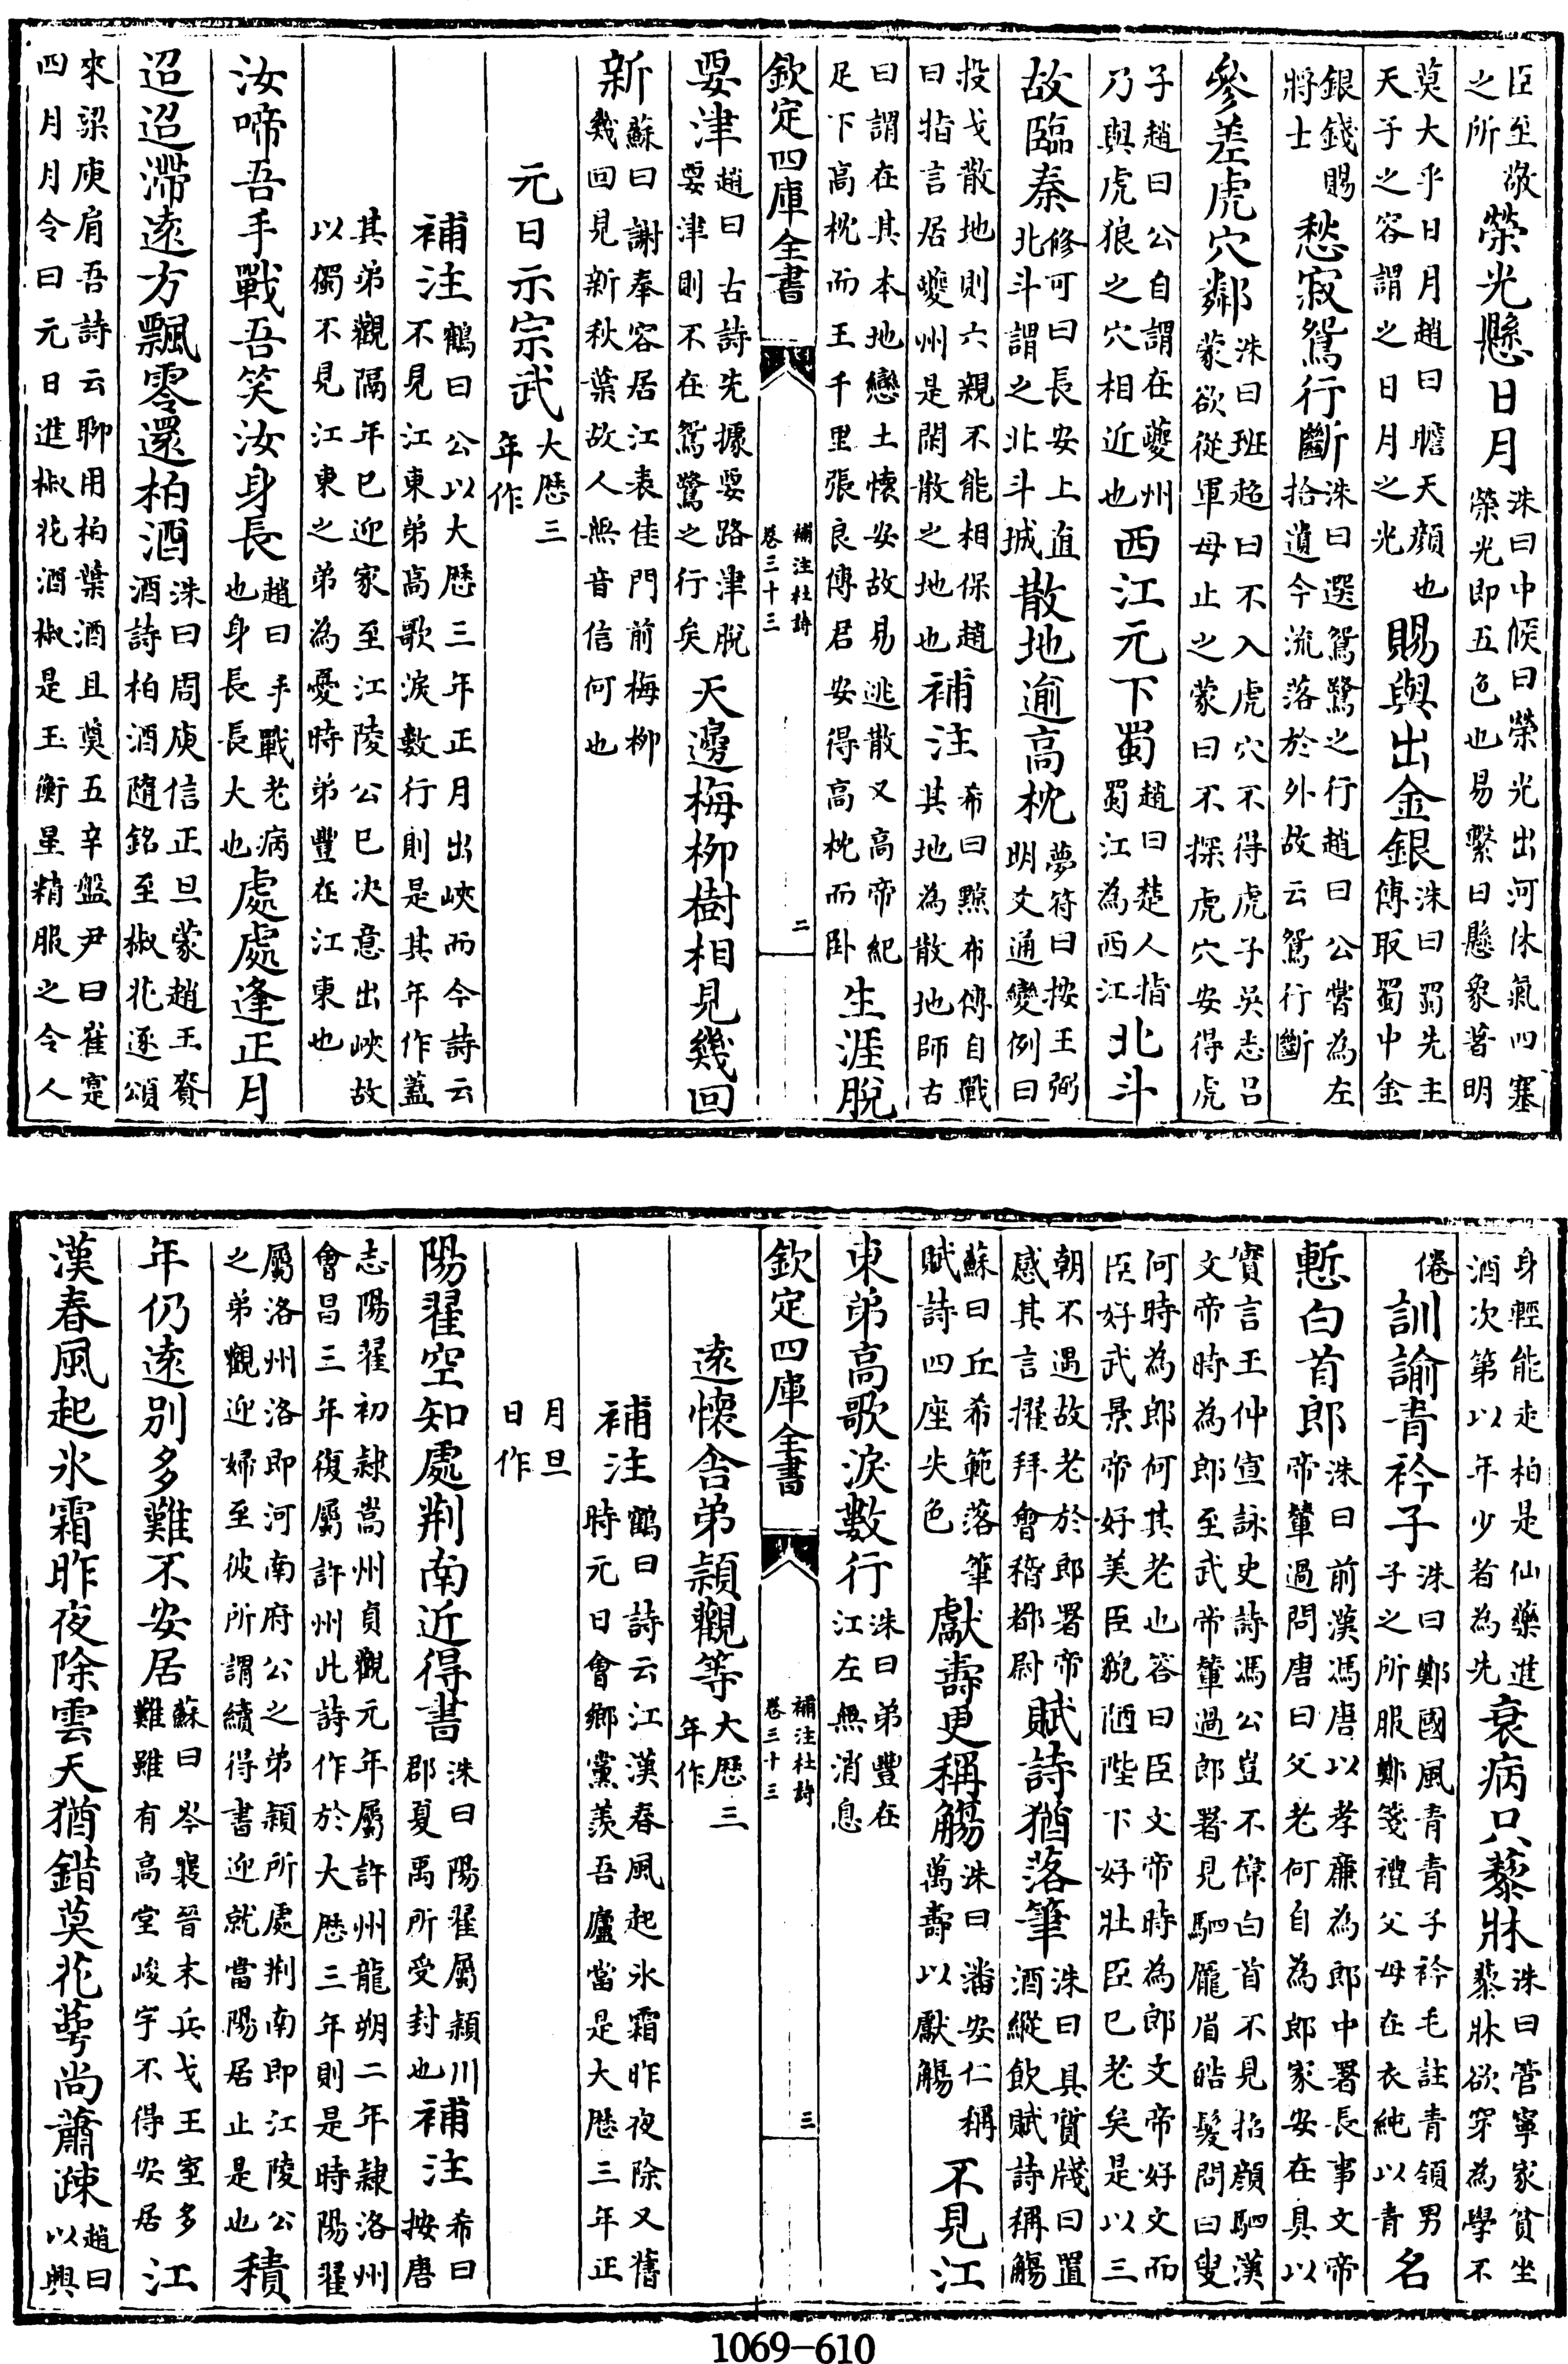 臣至敬之所榮光懸日月洙曰中候曰榮光出河休氣四塞榮光即五色也易繫曰懸象著明
莫大乎日月趙曰瞻天顔也天子之容謂之日月之光賜與出金銀洙曰蜀先主傳取蜀中金
銀錢賜將士愁寂鴛行斷洙曰選鴛鷺之行趙曰公嘗為左拾遺今流落於外故云鴛行斷
參差虎穴鄰洙曰班超曰不入虎穴不得虎子吳志吕蒙欲從軍母止之蒙曰不探虎穴安得虎
子趙曰公自謂在夔州乃與虎狼之穴相近也西江元下蜀趙曰楚人指蜀江為西江北斗
故臨秦修可曰長安上直北斗謂之北斗城散地逾高枕夢符曰按王弼明爻通變例曰
投戈散地則六親不能相保趙曰指言居夔州是閑散之地也補注希曰黥布傳自戰其地為散地師古
曰謂在其本地戀土懷安故易逃散又高帝紀足下高枕而王千里張良傳君安得高枕而卧生涯脫
欽定四庫全書 補注杜詩卷三十三 二
要津趙曰古詩先據要路津脫要津則不在鴛鷺之行矣天邊梅柳樹相見幾回
新蘇曰謝奉容居江表佳門前梅柳幾回見新秋葉故人無音信何也
元日示宗武大歴三年作
補注鶴曰公以大歴三年正月出峽而今詩云不見江東弟高歌淚數行則是其年作蓋
其弟觀隔年已迎家至江陵公已決意出峽故以獨不見江東之弟為憂時弟豐在江東也
汝啼吾手戰吾笑汝身長趙曰手戰老病也身長長大也處處逢正月
迢迢滯遠方飄零還柏酒洙曰周庾信正旦蒙趙王賚酒詩柏酒隨銘至椒花逐頌
來梁庾肩吾詩云聊用柏葉酒且奠五辛盤尹曰崔寔四月月令曰元日進椒花酒椒是玉衡星精服之令人
身輕能走柏是仙藥進酒次第以年少者為先衰病只藜牀洙曰管寧家貧坐藜牀欲穿為學不
倦訓諭青衿子洙曰鄭國風青青子衿毛註青領男子之所服鄭箋禮父母在衣純以青名
慙白首郎洙曰前漢馮唐以孝廉為郎中署長事文帝帝輦過問唐曰父老何自為郎家安在具以
實言王仲宣詠史詩馮公豈不偉白首不見招顔駟漢文帝時為郎至武帝輦過郎署見駟龎眉皓髮問曰叟
何時為郎何其老也答曰臣文帝時為郎文帝好文而臣好武景帝好美臣貌陋陛下好壯臣已老矣是以三
朝不遇故老於郎署帝感其言擢拜會稽都尉賦詩猶落筆洙曰具質牋曰置酒縱飲賦詩稱觴
蘇曰丘希範落筆賦詩四座失色獻壽更稱觴洙曰潘安仁稱萬壽以獻觴不見江
東弟高歌淚數行洙曰弟豐在江左無消息
欽定四庫全書 補注杜詩卷三十三 三
遠懷舍弟頴觀等大歴三年作
補注鶴曰詩云江漢春風起氷霜昨夜除又舊時元日會鄉黨羨吾廬當是大歴三年正
月旦日作
陽翟空知處荆南近得書洙曰陽翟屬頴川郡夏禹所受封也補注希曰按唐
志陽翟初隷嵩州貞觀元年屬許州龍朔二年隷洛州會昌三年復屬許州此詩作於大歴三年則是時陽翟
屬洛州洛即河南府公之弟頴所處荆南即江陵公之弟觀迎婦至彼所謂續得書迎就當陽居止是也積
年仍遠別多難不安居蘇曰岑㠐晉末兵戈王室多難雖有高堂峻宇不得安居江
漢春風起氷霜昨夜除雲天猶錯莫花萼尚蕭疎趙曰以興
1069-610